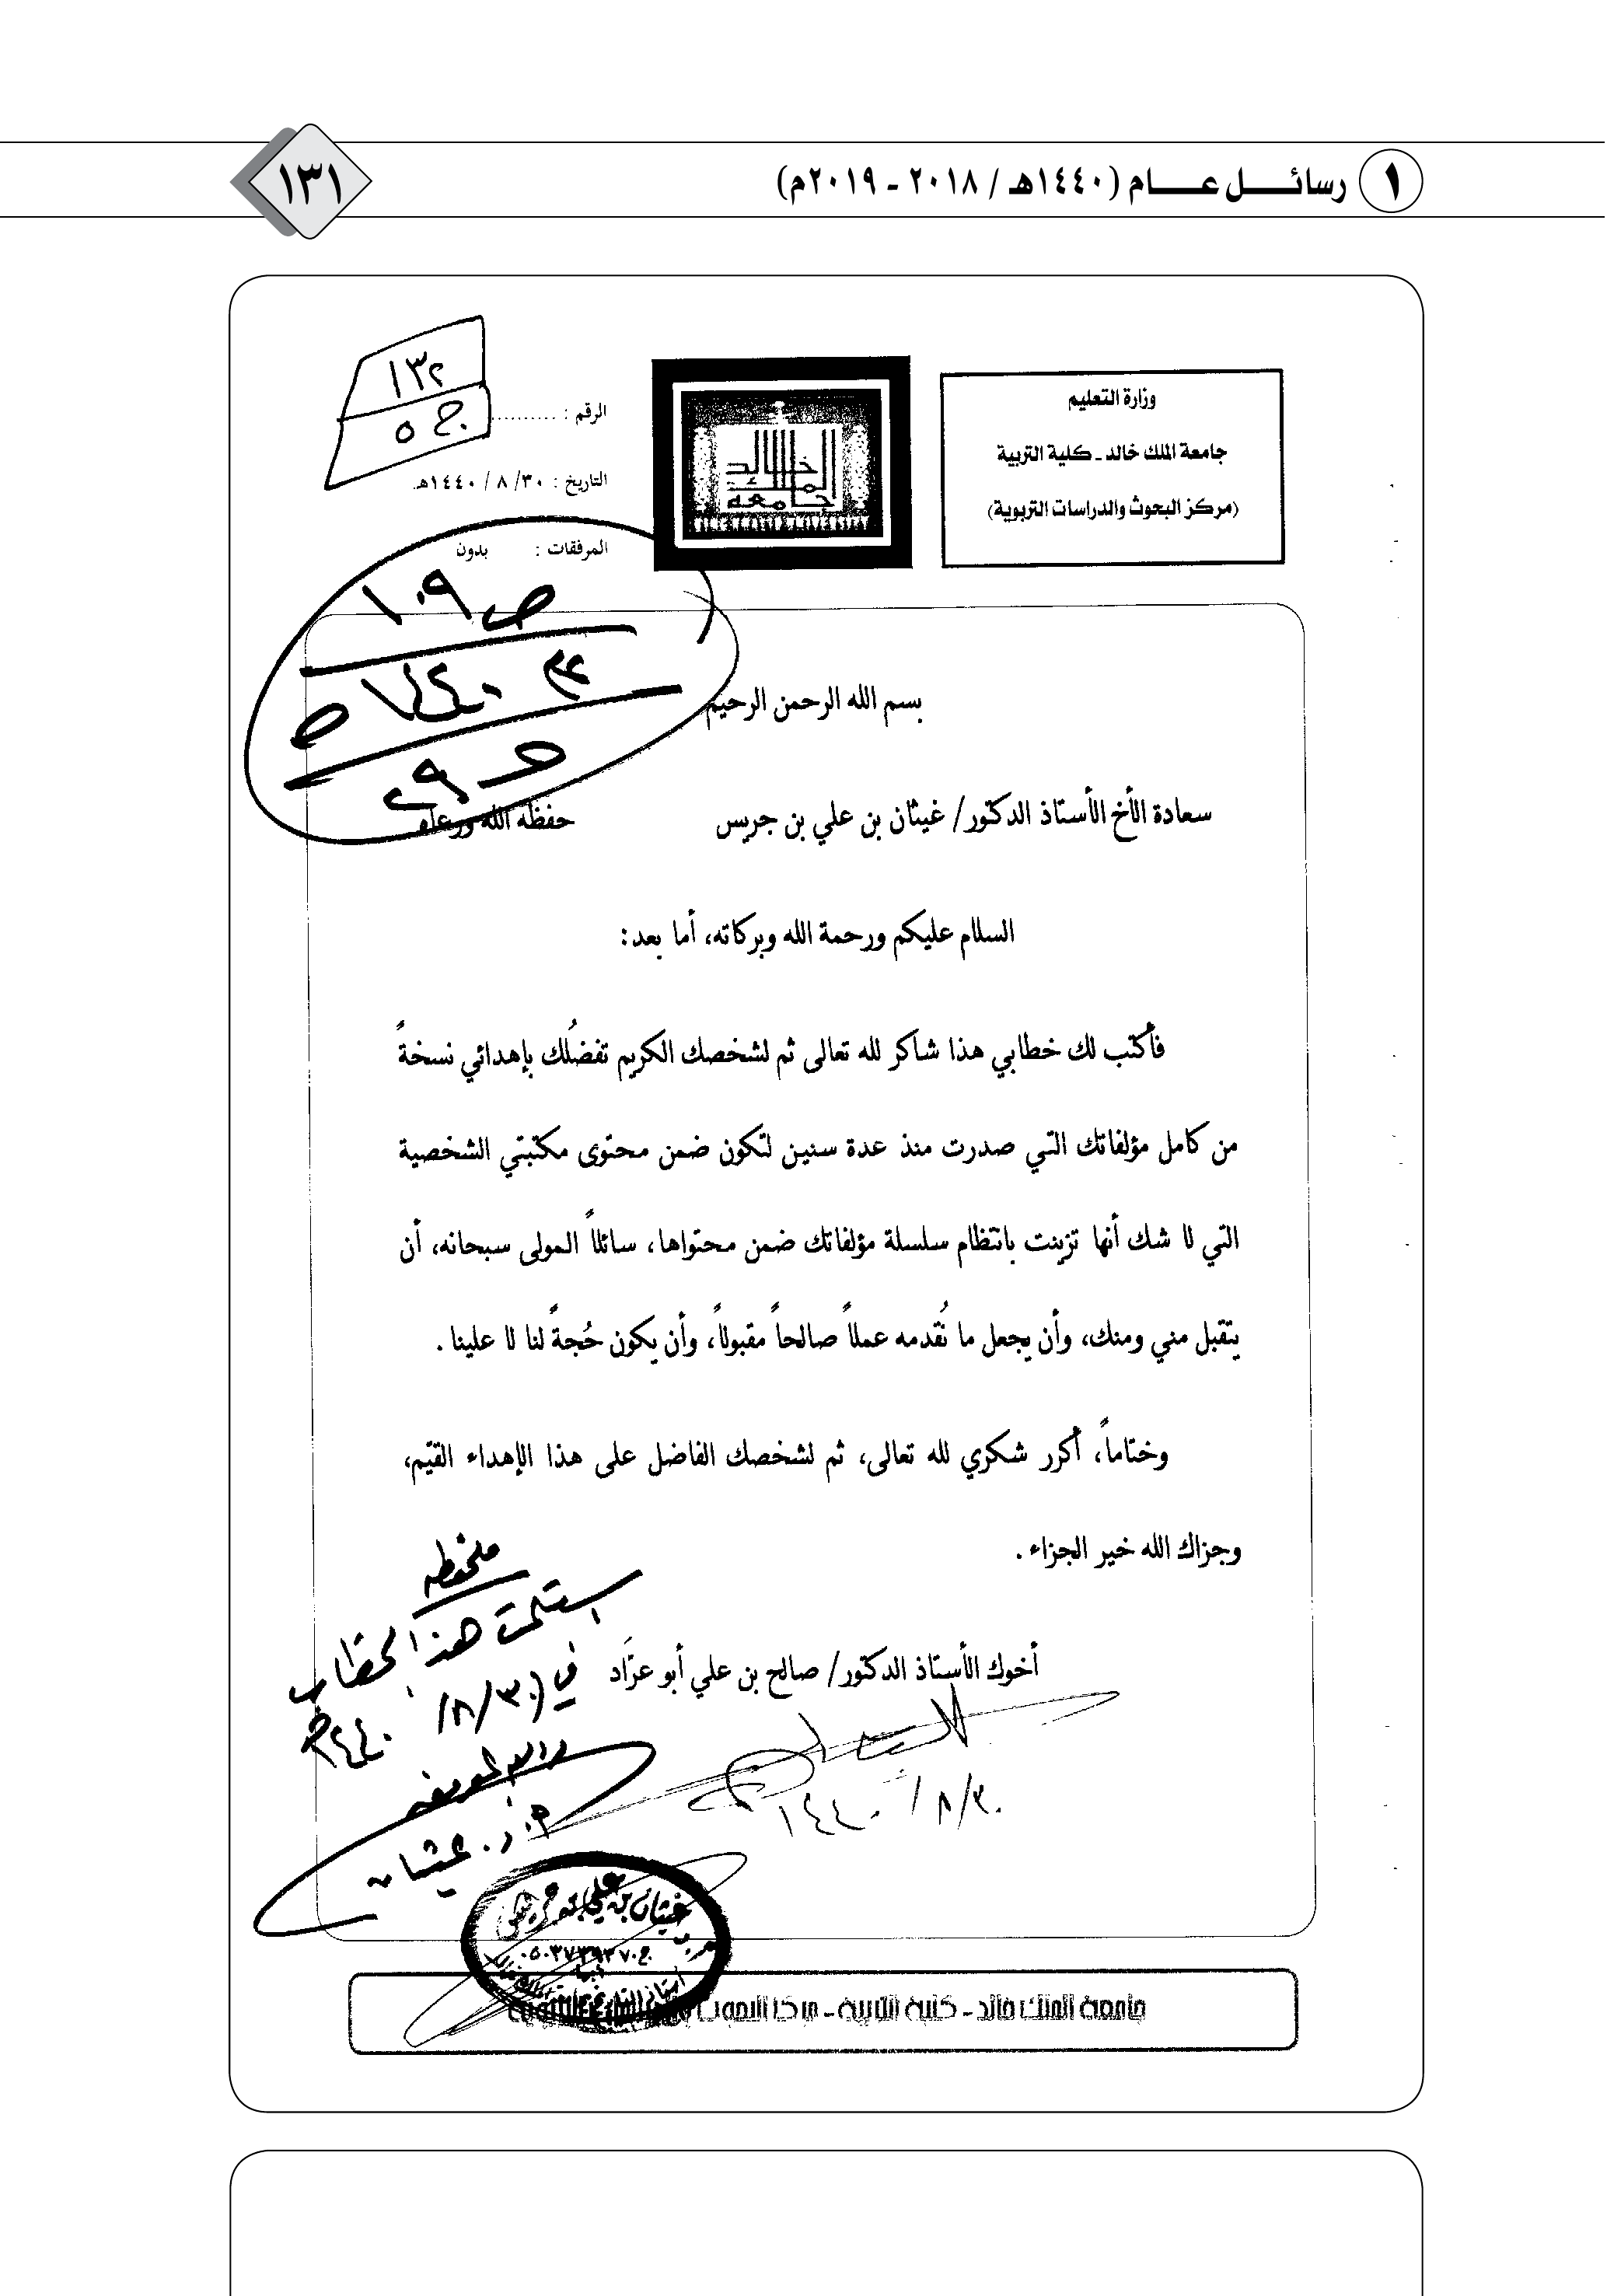 ١ رسائل عام (١٤٤٠هـ / ٢٠١٨ - ٢٠١٩م)
١٣١
وزارة التعليم
جامعة الملك خالد - كلية التربية
(مركز البحوث والدراسات التربوية)
جامعة الملك خالد
KING KHALID UNIVERSITY
١٣٢
ج ٥
الرقم : ..........
التاريخ : ٣٠/ ٨ / ١٤٤٠هـ.
المرفقات : بدون
ص ١٠٩
ح ٢٩
بسم الله الرحمن الرحيم
سعادة الأخ الأستاذ الدكتور/ غيثان بن علي بن جريس حفظه الله ورعاه
السلام عليكم ورحمة الله وبركاته، أما بعد:
فأكتب لك خطابي هذا شاكر لله تعالى ثم لشخصك الكريم تفضُلك بإهدائي نسخةً
من كامل مؤلفاتك التي صدرت منذ عدة سنين لتكون ضمن محتوى مكتبتي الشخصية
التي لا شك أنها تزينت بانتظام سلسلة مؤلفاتك ضمن محتواها، سائلاً المولى سبحانه، أن
يتقبل مني ومنك، وأن يجعل ما نُقدمه عملاً صالحاً مقبولاً، وأن يكون حُجةً لنا لا علينا .
وختاماً، أكرر شكري لله تعالى، ثم لشخصك الفاضل على هذا الإهداء القيّم،
وجزاك الله خير الجزاء .
أخوك الأستاذ الدكتور/ صالح بن علي أبو عرَّاد
٣٠/ ٨ / ١٤٤٠
ملحوظه
استلمت هذا الخطاب
في (٣٠/ ٨/ ١٤٤٠هـ)
أ.د. غيثان
غيثان بن علي بن جريس
ج ٠٥٠٣٧٣٩٣٧٠
أبها
جامعة الملك خالد - كلية التربية - مركز البحوث